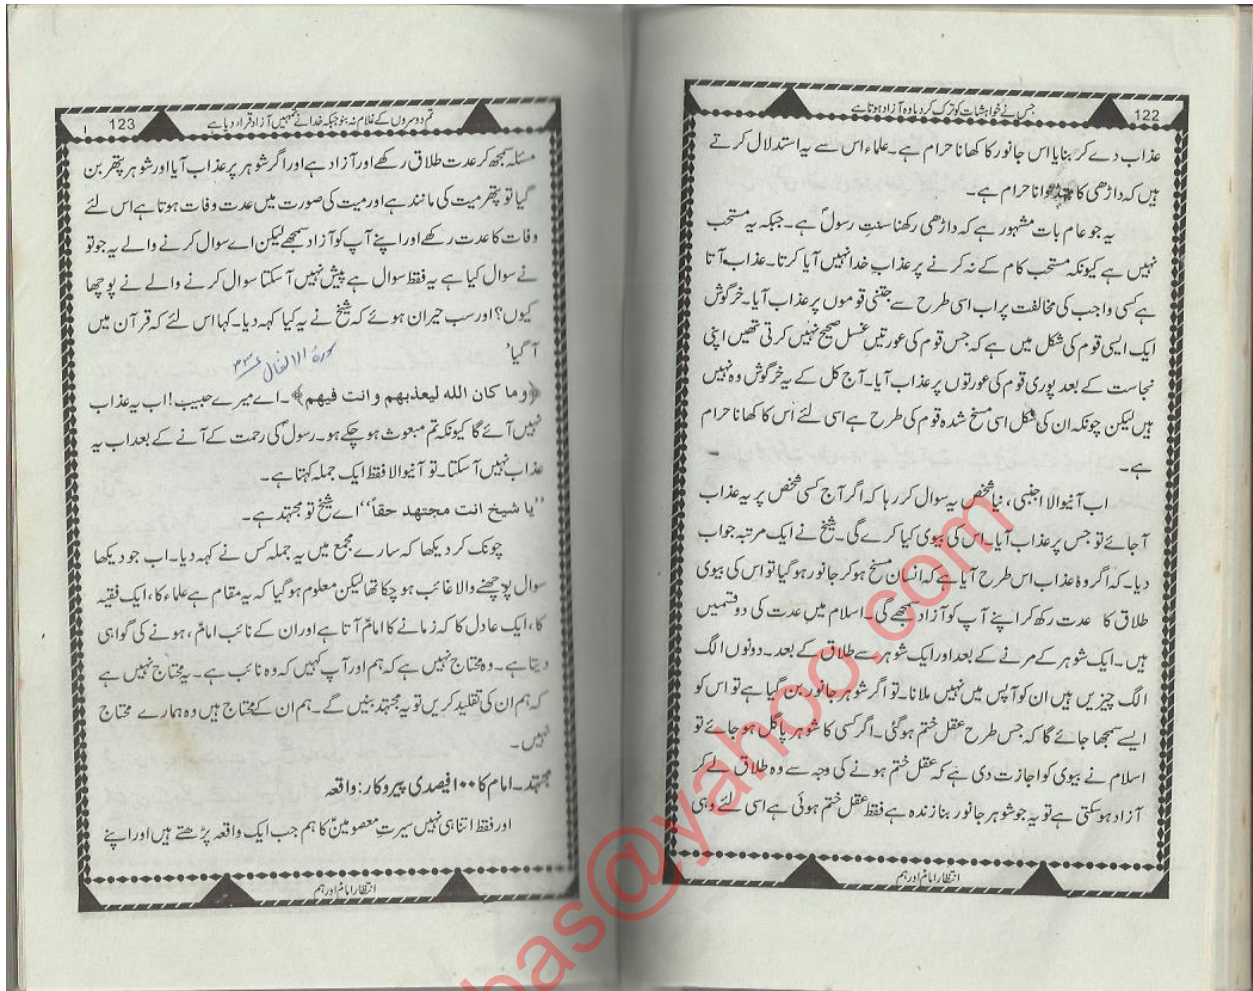 122
جس نے خواہشات کو ترک کر دیا وہ آزاد ہوتا ہے
عذاب دے کر بنایا اس جانور کا کھانا حرام ہے۔ علماء اس سے یہ استدلال کرتے
ہیں کہ داڑھی کا منڈوانا حرام ہے۔
یہ جو عام بات مشہور ہے کہ داڑھی رکھنا سنتِ رسولؐ ہے۔ جبکہ یہ مستحب
نہیں ہے کیونکہ مستحب کام کے نہ کرنے پر عذاب خدا نہیں آیا کرتا۔ عذاب آتا
ہے کسی واجب کی مخالفت پر اب اسی طرح سے جتنی قوموں پر عذاب آیا۔ خرگوش
ایک ایسی قوم کی شکل میں ہے کہ جس قوم کی عورتیں غسل صحیح نہیں کرتی تھیں اپنی
نجاست کے بعد پوری قوم کی عورتوں پر عذاب آیا۔ آج کل کے یہ خرگوش وہ نہیں
ہیں لیکن چونکہ ان کی شکل اسی مسخ شدہ قوم کی طرح ہے اسی لئے اُس کا کھانا حرام
ہے۔
اب آنیوالا اجنبی، نیا شخص یہ سوال کر رہا کہ اگر آج کسی شخص پر یہ عذاب
آ جائے تو جس پر عذاب آیا۔ اس کی بیوی کیا کرے گی۔ شیخ نے ایک مرتبہ جواب
دیا۔ کہ اگر وہ عذاب اس طرح آیا ہے کہ انسان مسخ ہو کر جانور ہو گیا تو اس کی بیوی
طلاق کا عدت رکھ کر اپنے آپ کو آزاد سمجھے گی۔ اسلام میں عدت کی دو قسمیں
ہیں۔ ایک شوہر کے مرنے کے بعد اور ایک شوہر سے طلاق کے بعد۔ دونوں الگ
الگ چیزیں ہیں ان کو آپس میں نہیں ملانا۔ تو اگر شوہر جانور بن گیا ہے تو اس کو
ایسے سمجھا جائے گا کہ جس طرح عقل ختم ہو گئی۔ اگر کسی کا شوہر پاگل ہو جائے تو
اسلام نے بیوی کو اجازت دی ہے کہ عقل ختم ہونے کی وجہ سے وہ طلاق لے کر
آزاد ہو سکتی ہے تو یہ جو شوہر جانور بنا زندہ ہے فقط عقل ختم ہوئی ہے اسی لئے وہی
انتظار امامؑ اور ہم
123
تم دوسروں کے غلام نہ بنو جبکہ خدا نے تمہیں آزاد قرار دیا ہے
مسئلہ سمجھ کر عدت طلاق رکھے اور آزاد ہے اور اگر شوہر پر عذاب آیا اور شوہر پتھر بن
گیا تو پتھر میت کی مانند ہے اور میت کی صورت میں عدت وفات ہوتا ہے اس لئے
وفات کا عدت رکھے اور اپنے آپ کو آزاد سمجھے لیکن اے سوال کرنے والے یہ جو تو
نے سوال کیا ہے یہ فقط سوال ہے پیش نہیں آ سکتا سوال کرنے والے نے پوچھا
کیوں؟ اور سب حیران ہوئے کہ شیخ نے یہ کیا کہہ دیا۔ کہا اس لئے کہ قرآن میں
آ گیا'
سورۃ الانفال
﴿وما كان الله ليعذبهم وانت فيهم﴾۔ اے میرے حبیب! اب یہ عذاب
نہیں آئے گا کیونکہ تم مبعوث ہو چکے ہو۔ رسولؐ کی رحمت کے آنے کے بعد اب یہ
عذاب نہیں آ سکتا۔ تو آنیوالا فقط ایک جملہ کہتا ہے۔
"يا شيخ انت مجتهد حقاً" اے شیخ تو مجتہد ہے۔
چونک کر دیکھا کہ سارے مجمع میں یہ جملہ کس نے کہہ دیا۔ اب جو دیکھا
سوال پوچھنے والا غائب ہو چکا تھا لیکن معلوم ہو گیا کہ یہ مقام ہے علماء کا، ایک فقیہ
کا، ایک عادل کا کہ زمانے کا امامؑ آتا ہے اور ان کے نائب امامؑ، ہونے کی گواہی
دیتا ہے۔ وہ محتاج نہیں ہے کہ ہم اور آپ کہیں کہ وہ نائب ہے۔ یہ محتاج نہیں ہے
کہ ہم ان کی تقلید کریں تو یہ مجتہد بنیں گے۔ ہم ان کے محتاج ہیں وہ ہمارے محتاج
نہیں۔
مجتہد۔ امام کا ۱۰۰ فیصدی پیروکار: واقعہ
اور فقط اتنا ہی نہیں سیرتِ معصومینؑ کا ہم جب ایک واقعہ پڑھتے ہیں اور اپنے
انتظار امامؑ اور ہم
bas@yahoo.com